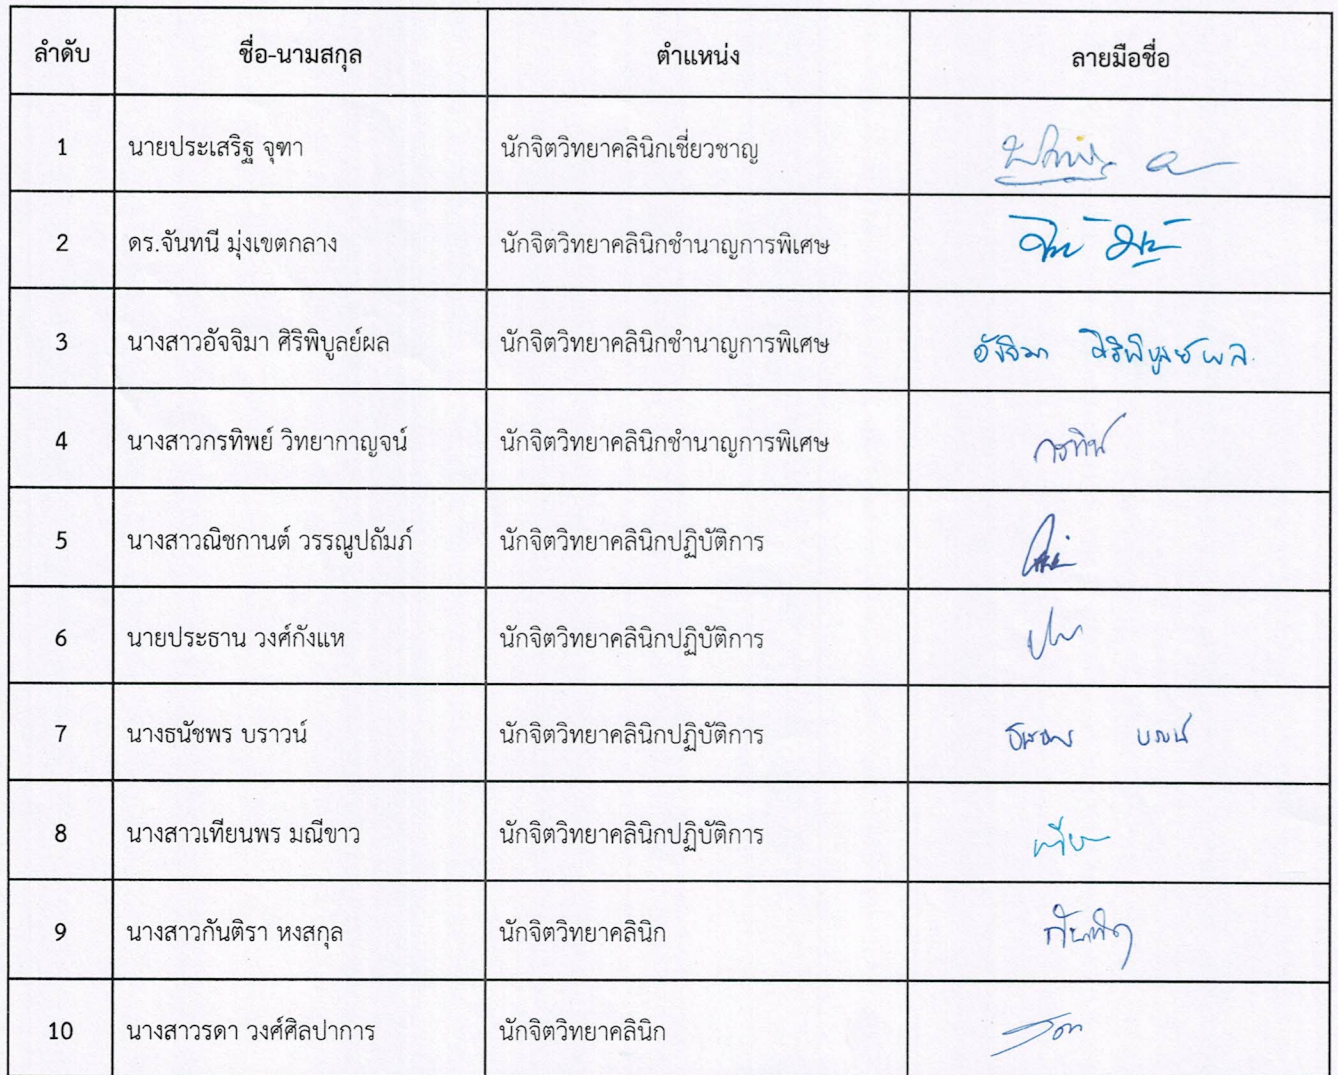 ลำดับ ชื่อ-นามสกุล ตำแหน่ง ลายมือชื่อ
1 นายประเสริฐ จุฑา นักจิตวิทยาคลินิกเชี่ยวชาญ
2 ดร.จันทนี มุ่งเขตกลาง นักจิตวิทยาคลินิกชำนาญการพิเศษ
3 นางสาวอัจจิมา ศิริพิบูลย์ผล นักจิตวิทยาคลินิกชำนาญการพิเศษ อัจจิมา ศิริพิบูลย์ผล
4 นางสาวกรทิพย์ วิทยากาญจน์ นักจิตวิทยาคลินิกชำนาญการพิเศษ
5 นางสาวณิชกานต์ วรรณูปถัมภ์ นักจิตวิทยาคลินิกปฏิบัติการ
6 นายประธาน วงศ์กังแห นักจิตวิทยาคลินิกปฏิบัติการ
7 นางธนัชพร บราวน์ นักจิตวิทยาคลินิกปฏิบัติการ
8 นางสาวเทียนพร มณีขาว นักจิตวิทยาคลินิกปฏิบัติการ
9 นางสาวกันติรา หงสกุล นักจิตวิทยาคลินิก
10 นางสาวรดา วงศ์ศิลปาการ นักจิตวิทยาคลินิก